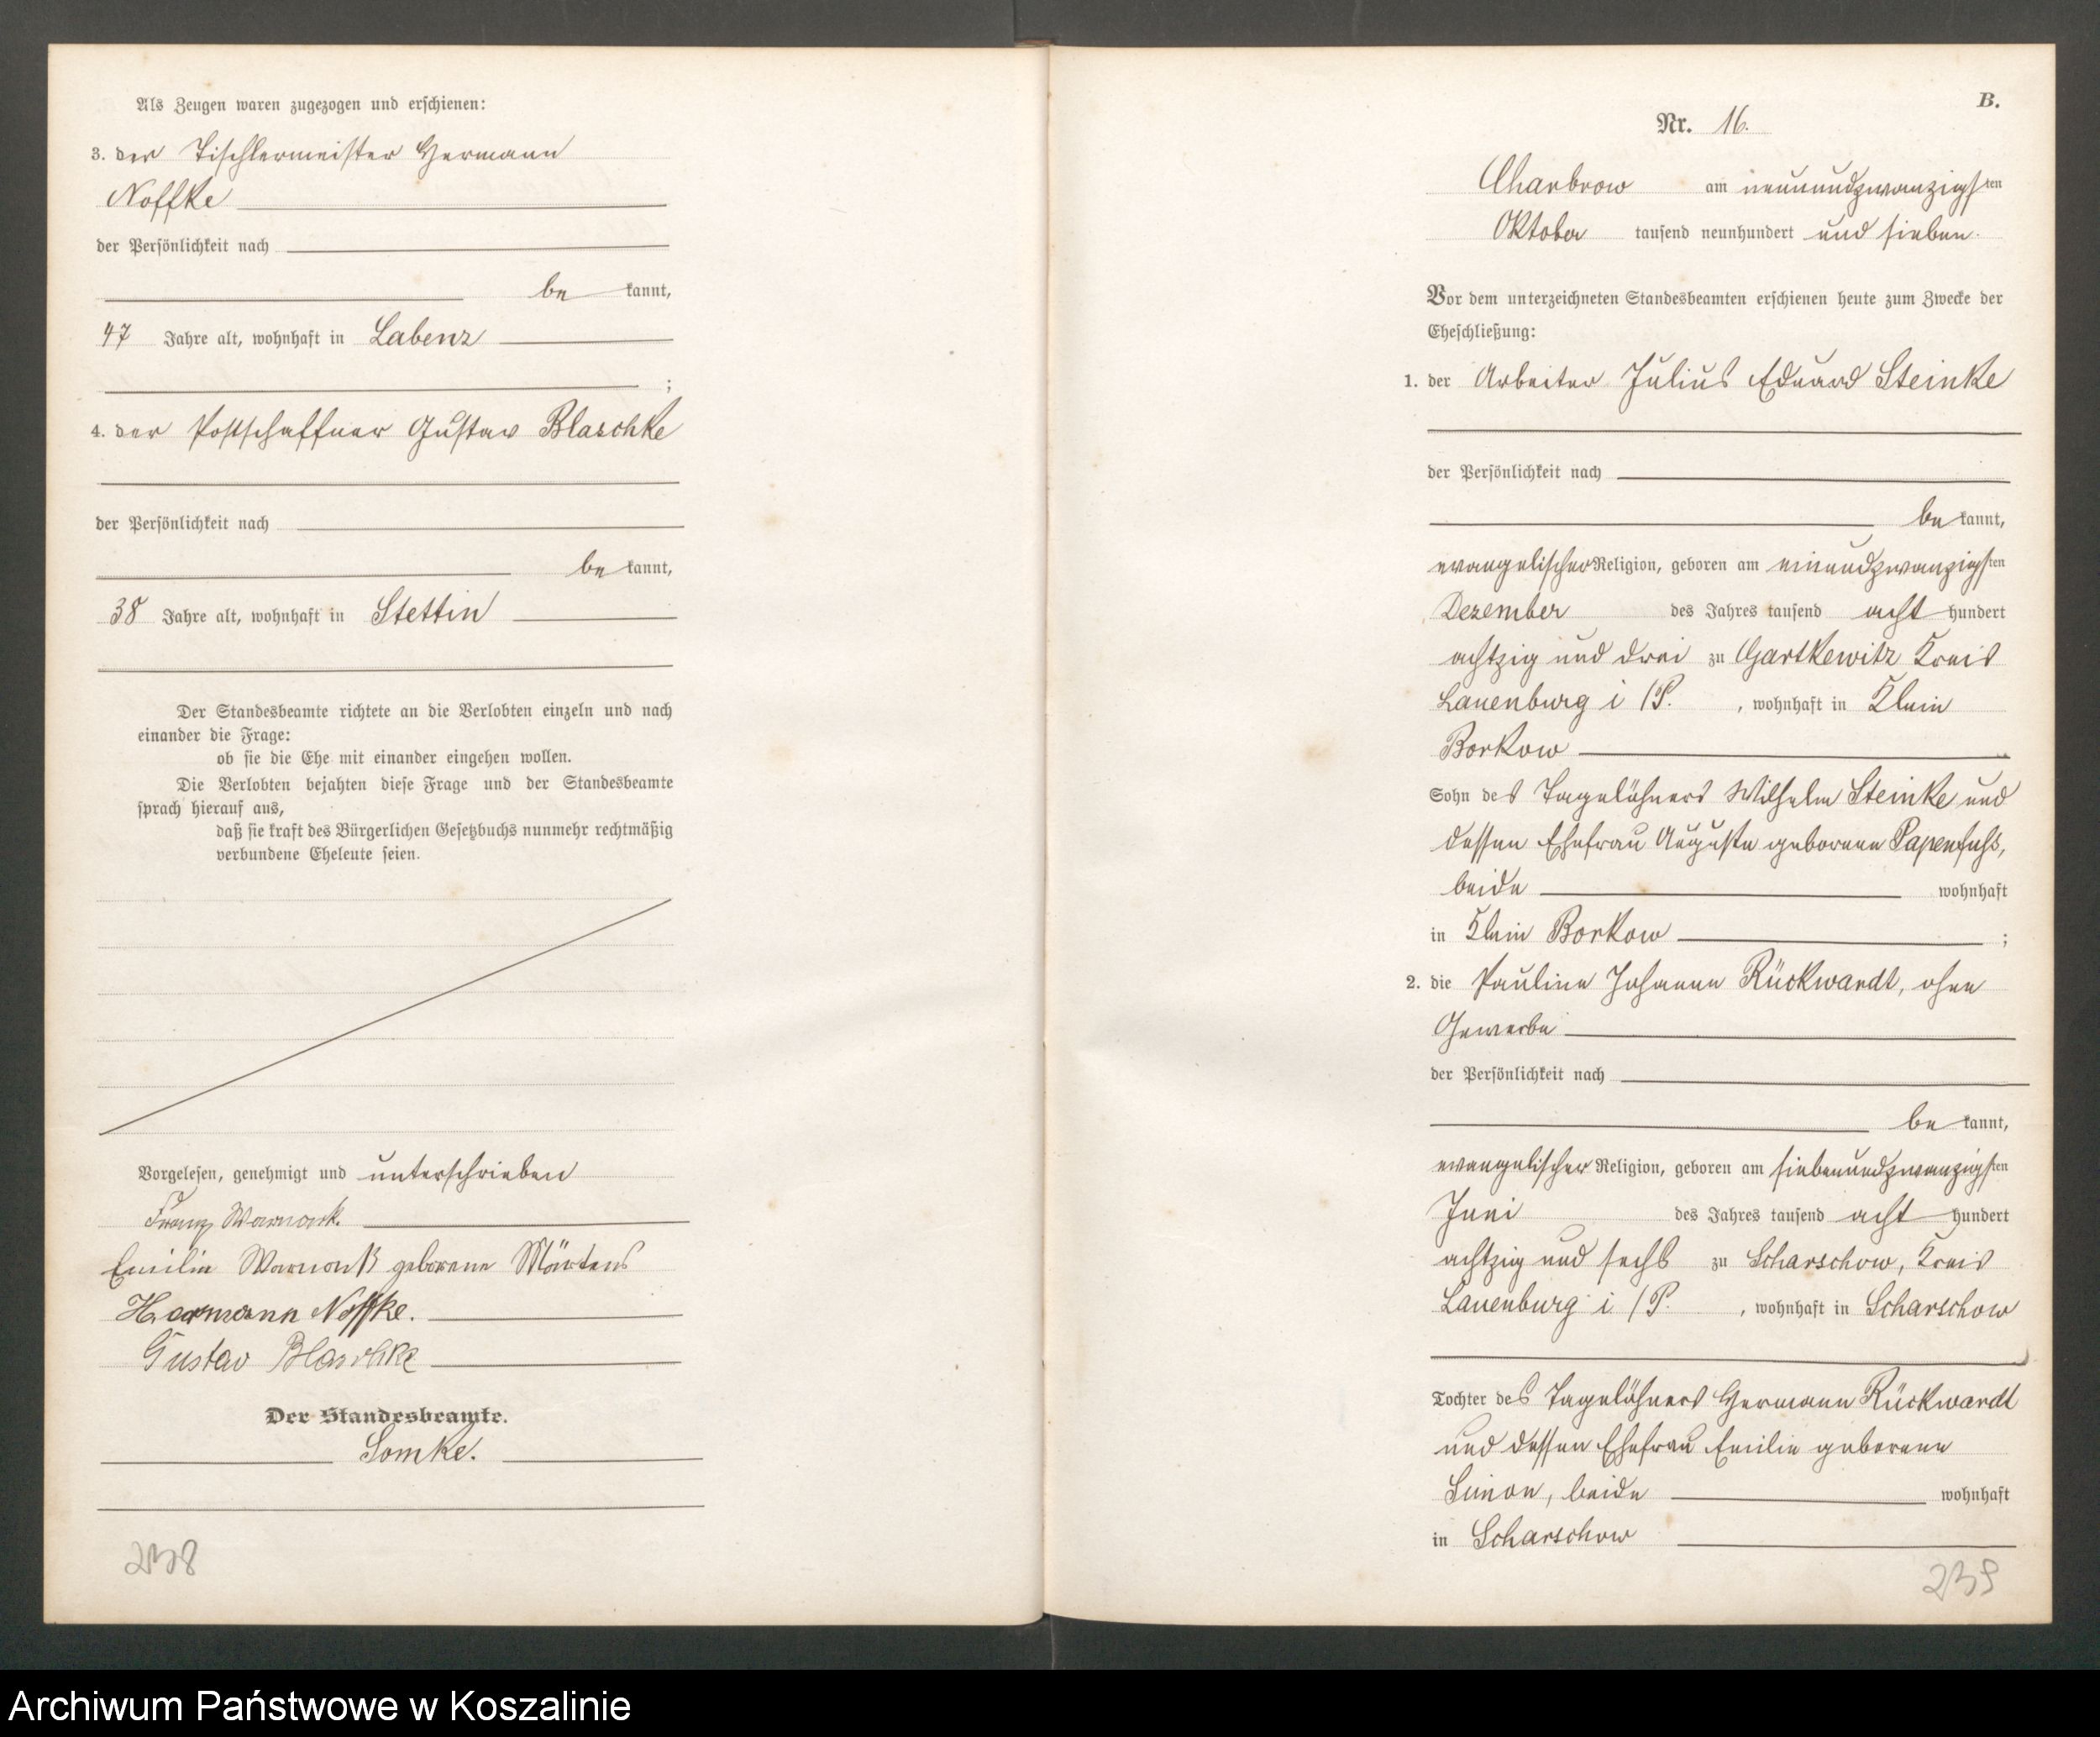 Als Zeugen waren zugezogen und erschienen:
3. der Tischlermeister Hermann
Noffke
der Persönlichkeit nach
be kannt,
47 Jahre alt, wohnhaft in Labenz
;
4. der Postschaffner Gustav Blaschke
der Persönlichkeit nach
be kannt,
38 Jahre alt, wohnhaft in Stettin
Der Standesbeamte richtete an die Verlobten einzeln und nach
einander die Frage:
ob sie die Ehe mit einander eingehen wollen.
Die Verlobten bejahten diese Frage und der Standesbeamte
sprach hierauf aus,
daß sie kraft des Bürgerlichen Gesetzbuchs nunmehr rechtmäßig
verbundene Eheleute seien.
Vorgelesen, genehmigt und unterschrieben
Franz
Emilie geborene Märtens
Hermann Noffke.
Gustav Blaschke
Der Standesbeamte.
Lomke.
238
B.
Nr. 16.
Charbrow am neunundzwanzigsten
Oktober tausend neunhundert und sieben.
Vor dem unterzeichneten Standesbeamten erschienen heute zum Zwecke der
Eheschließung:
1. der Arbeiter Julius Eduard Steinke
der Persönlichkeit nach
be kannt,
evangelischer Religion, geboren am einundzwanzigsten
Dezember des Jahres tausend acht hundert
achtzig und drei zu Gartkewitz Kreis
Lauenburg i/P. , wohnhaft in Klein
Borkow
Sohn des Tagelöhners Wilhelm Steinke und
dessen Ehefrau Auguste geborene Papenfuhs,
beide wohnhaft
in Klein Borkow ;
2. die Pauline Johanne Rückwardt, ohne
Gewerbe
der Persönlichkeit nach
be kannt,
evangelischer Religion, geboren am siebenundzwanzigsten
Juni des Jahres tausend acht hundert
achtzig und sechs zu Scharschow, Kreis
Lauenburg i/P. , wohnhaft in Scharschow
Tochter des Tagelöhners Hermann Rückwardt
und dessen Ehefrau Emilie geborene
Simon, beide wohnhaft
in Scharschow
239
Archiwum Państwowe w Koszalinie